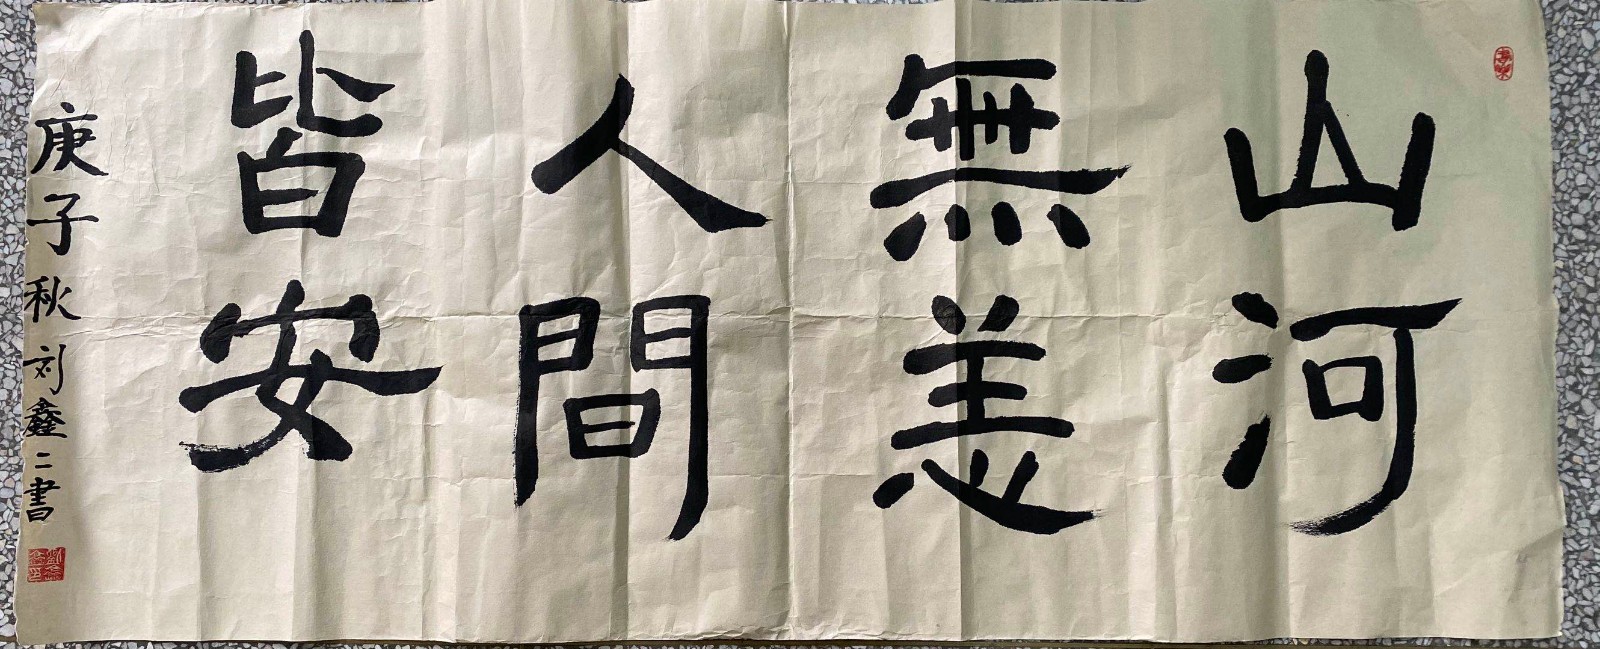 山河
無恙
人間
皆安
庚子秋刘鑫二書